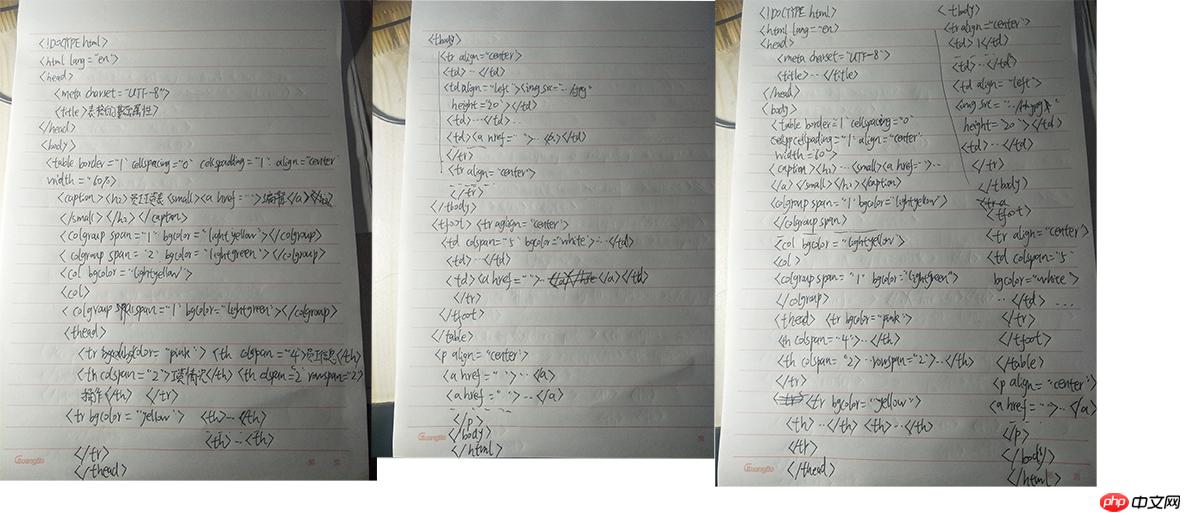 <!DOCTYPE html>
<html lang="en">
<head>
<meta charset="UTF-8">
<title>表格的属性>
</head>
<body>
<table border="1" cellspacing="0" cellspadding="1" align="center"
width="60%">
<caption><h2> <small><a href="…">编辑</a>
</small></h2></caption>
<colgroup span="1" bgcolor="lightyellow"></colgroup>
<colgroup span="2" bgcolor="lightgreen"></colgroup>
<col bgcolor="lightyellow">
<col>
<colgroup span="1" bgcolor="lightgreen"></colgroup>
<thead>
<tr bgcolor="pink"> <th colspan="4">员工信息</th>
<th colspan="2"> </th> <th colspan=2 rowspan="2">
操作</th> </tr>
<tr bgcolor="yellow"> <th>…</th>
<th>…<th>
</tr>
</thead>
Guangbo
<tbody>
<tr align="center">
<td>…</td>
<td align="left"><img src="…/jpg"
height="20"></td>
<td>…<td>…
<td><a href=" ">…</a></td>
</tr>
<tr align="center">
</tr>
</tbody>
<tfoot> <tr align="center">
<td colspan="5" bgcolor="white">…</td>
<td>…</td>
<td><a href=" ">… </a></td>
</tr>
</tfoot>
</table>
<p align="center">
<a href=" ">…</a>
<a href=" ">…</a>
</p>
</body>
</html>
Guangbo
<!DOCTYPE html>
<html lang="en>
<head>
<meta charset="UTF-8">
<title>…</title>
</head>
<body>
<table border="1" cellspacing="0"
cellspadding="1" align="center"
width="60">
<caption><h2>…<small><a href="">…
</a></small></h2></caption>
<colgroup span="1" bgcolor="lightyellow">
</colgroup span>
<col bgcolor="lightyellow>
<col>
<colgroup span="1" bgcolor="lightgreen">
</colgroup>
<thead> <tr bgcolor="pink">
<th colspan="4">…</th>
<th colspan="2> rowspan="2">…</th>
</tr>
<tr bgcolor="yellow">
<th>…</th> <th>…</th>
</tr>
</thead>
Guangbo
<tbody>
<tr align="center">
<td>1</td>
<td>…</td>
<td align="left">
<img src="
height="20"></td>
<td>…</td>
</tr>
</tbody>
<tfoot>
<tr align="center">
<td colspan="5"
bgcolor="white">
…</td> …
</tr>
</tfoot>
</table>
<p align="center">
<a href="">…</a>
</p>
</body>
</html>
php 中文网